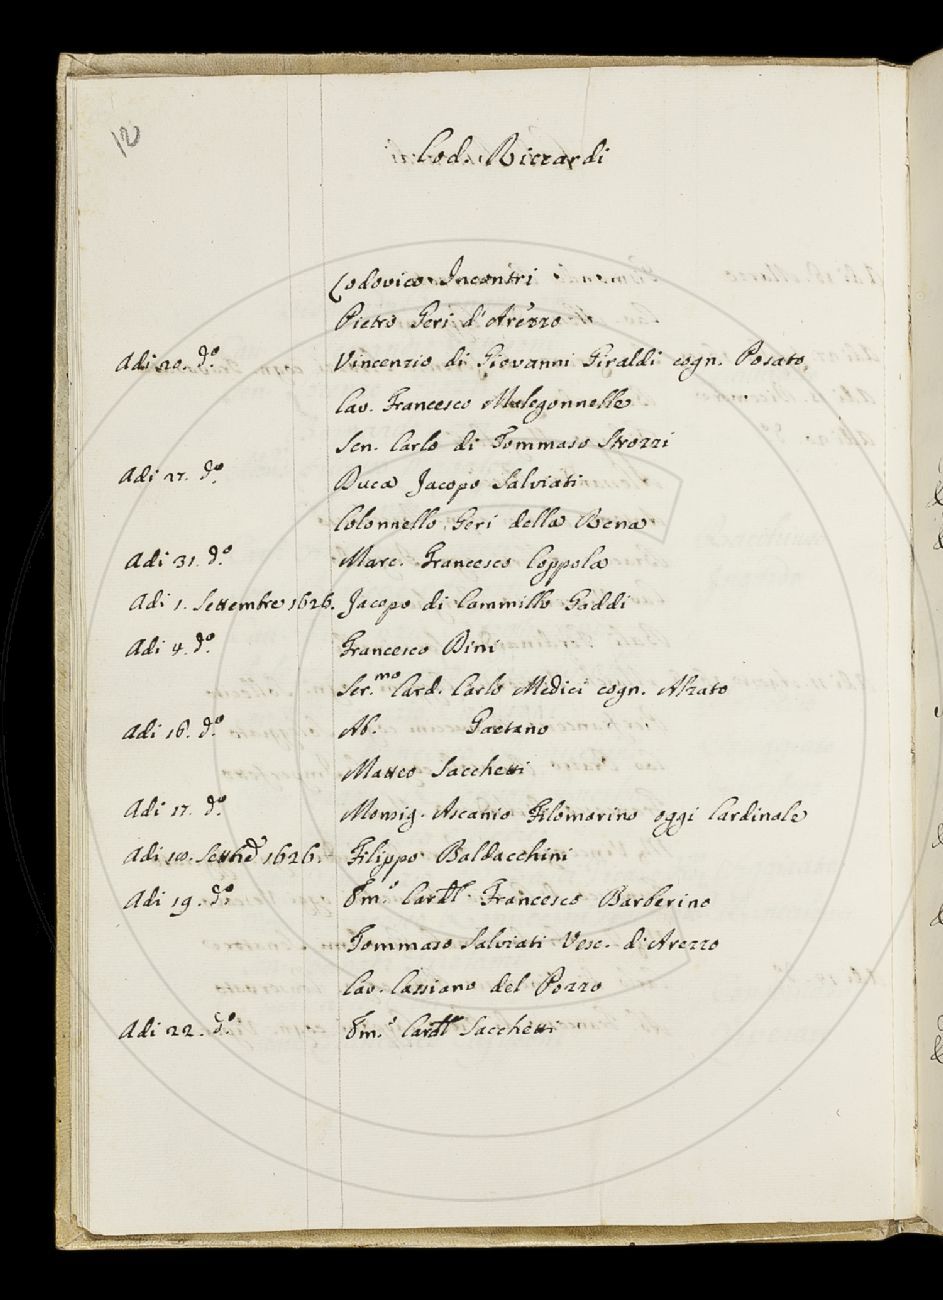 12
Cod. Riccardi
Lodovico Incontri
Pietro Geri d'Arezzo
Adi 20. do. Vincenzio di Giovanni Giraldi cogn. Posato
Cav. Francesco Malegonnelle
Sen. Carlo di Tommaso Strozzi
Adi 27. do. Duca Jacopo Salviati
Colonnello Geri della Rena
Adi 31. do. Marc. Francesco Coppola
Adi 1. Settembre 1626. Jacopo di Cammillo Gaddi
Adi 4. do. Francesco Bini
Ser.mo Card. Carlo Medici cogn. Alzato
Adi 16. do. Ab. Gaetano
Matteo Sacchetti
Adi 17. do. Monsig. Ascanio Filomarino oggi Cardinale
Adi 18. Settbe 1626. Filippo Baldacchini
Adi 19. do. Em.o Cardl. Francesco Barberino
Tommaso Salviati Vesc. d'Arezzo
Cav. Cassiano del Pozzo
Adi 22. do. Em.o Cardl Sacchetti